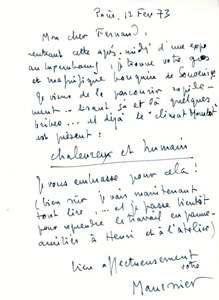 Paris, 12 Fev 73
Mon cher Fernand,
rentrant cette après-midi d'une expo
au Luxembourg, je trouve votre gros
et magnifique bouquin de souvenirs
Je viens de le parcourir rapide-
ment... lisant çà et là quelques
bribes... et déjà le "climat
est présent :
chaleureux et humain
Je vous embrasse pour cela !
(bien sûr je vais maintenant
tout lire, ... et je passe bientôt
pour reprendre le travail en
amitiés à Henri et à l'atelier)
bien affectueusement
votre